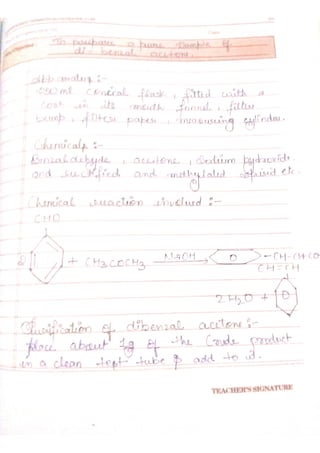 To prepare a pure sample of
di-benzal acetone.
Apparatus :-
conical flask, fitted with a
in its mouth funnel, filter
pump, filter paper, measuring cylinder.
Chemicals :-
Benzaldehyde, acetone, Sodium hydroxide
and rectified and methylated etc.
Chemical reaction involved :-
CHO
2) + CH3COCH3 NaOH -CH-CH CO
CH=CH
2H2O +
of dibenzal acetone :-
place about 1g of the Crude product
in a clean & add to it.
TEACHER'S SIGNATURE